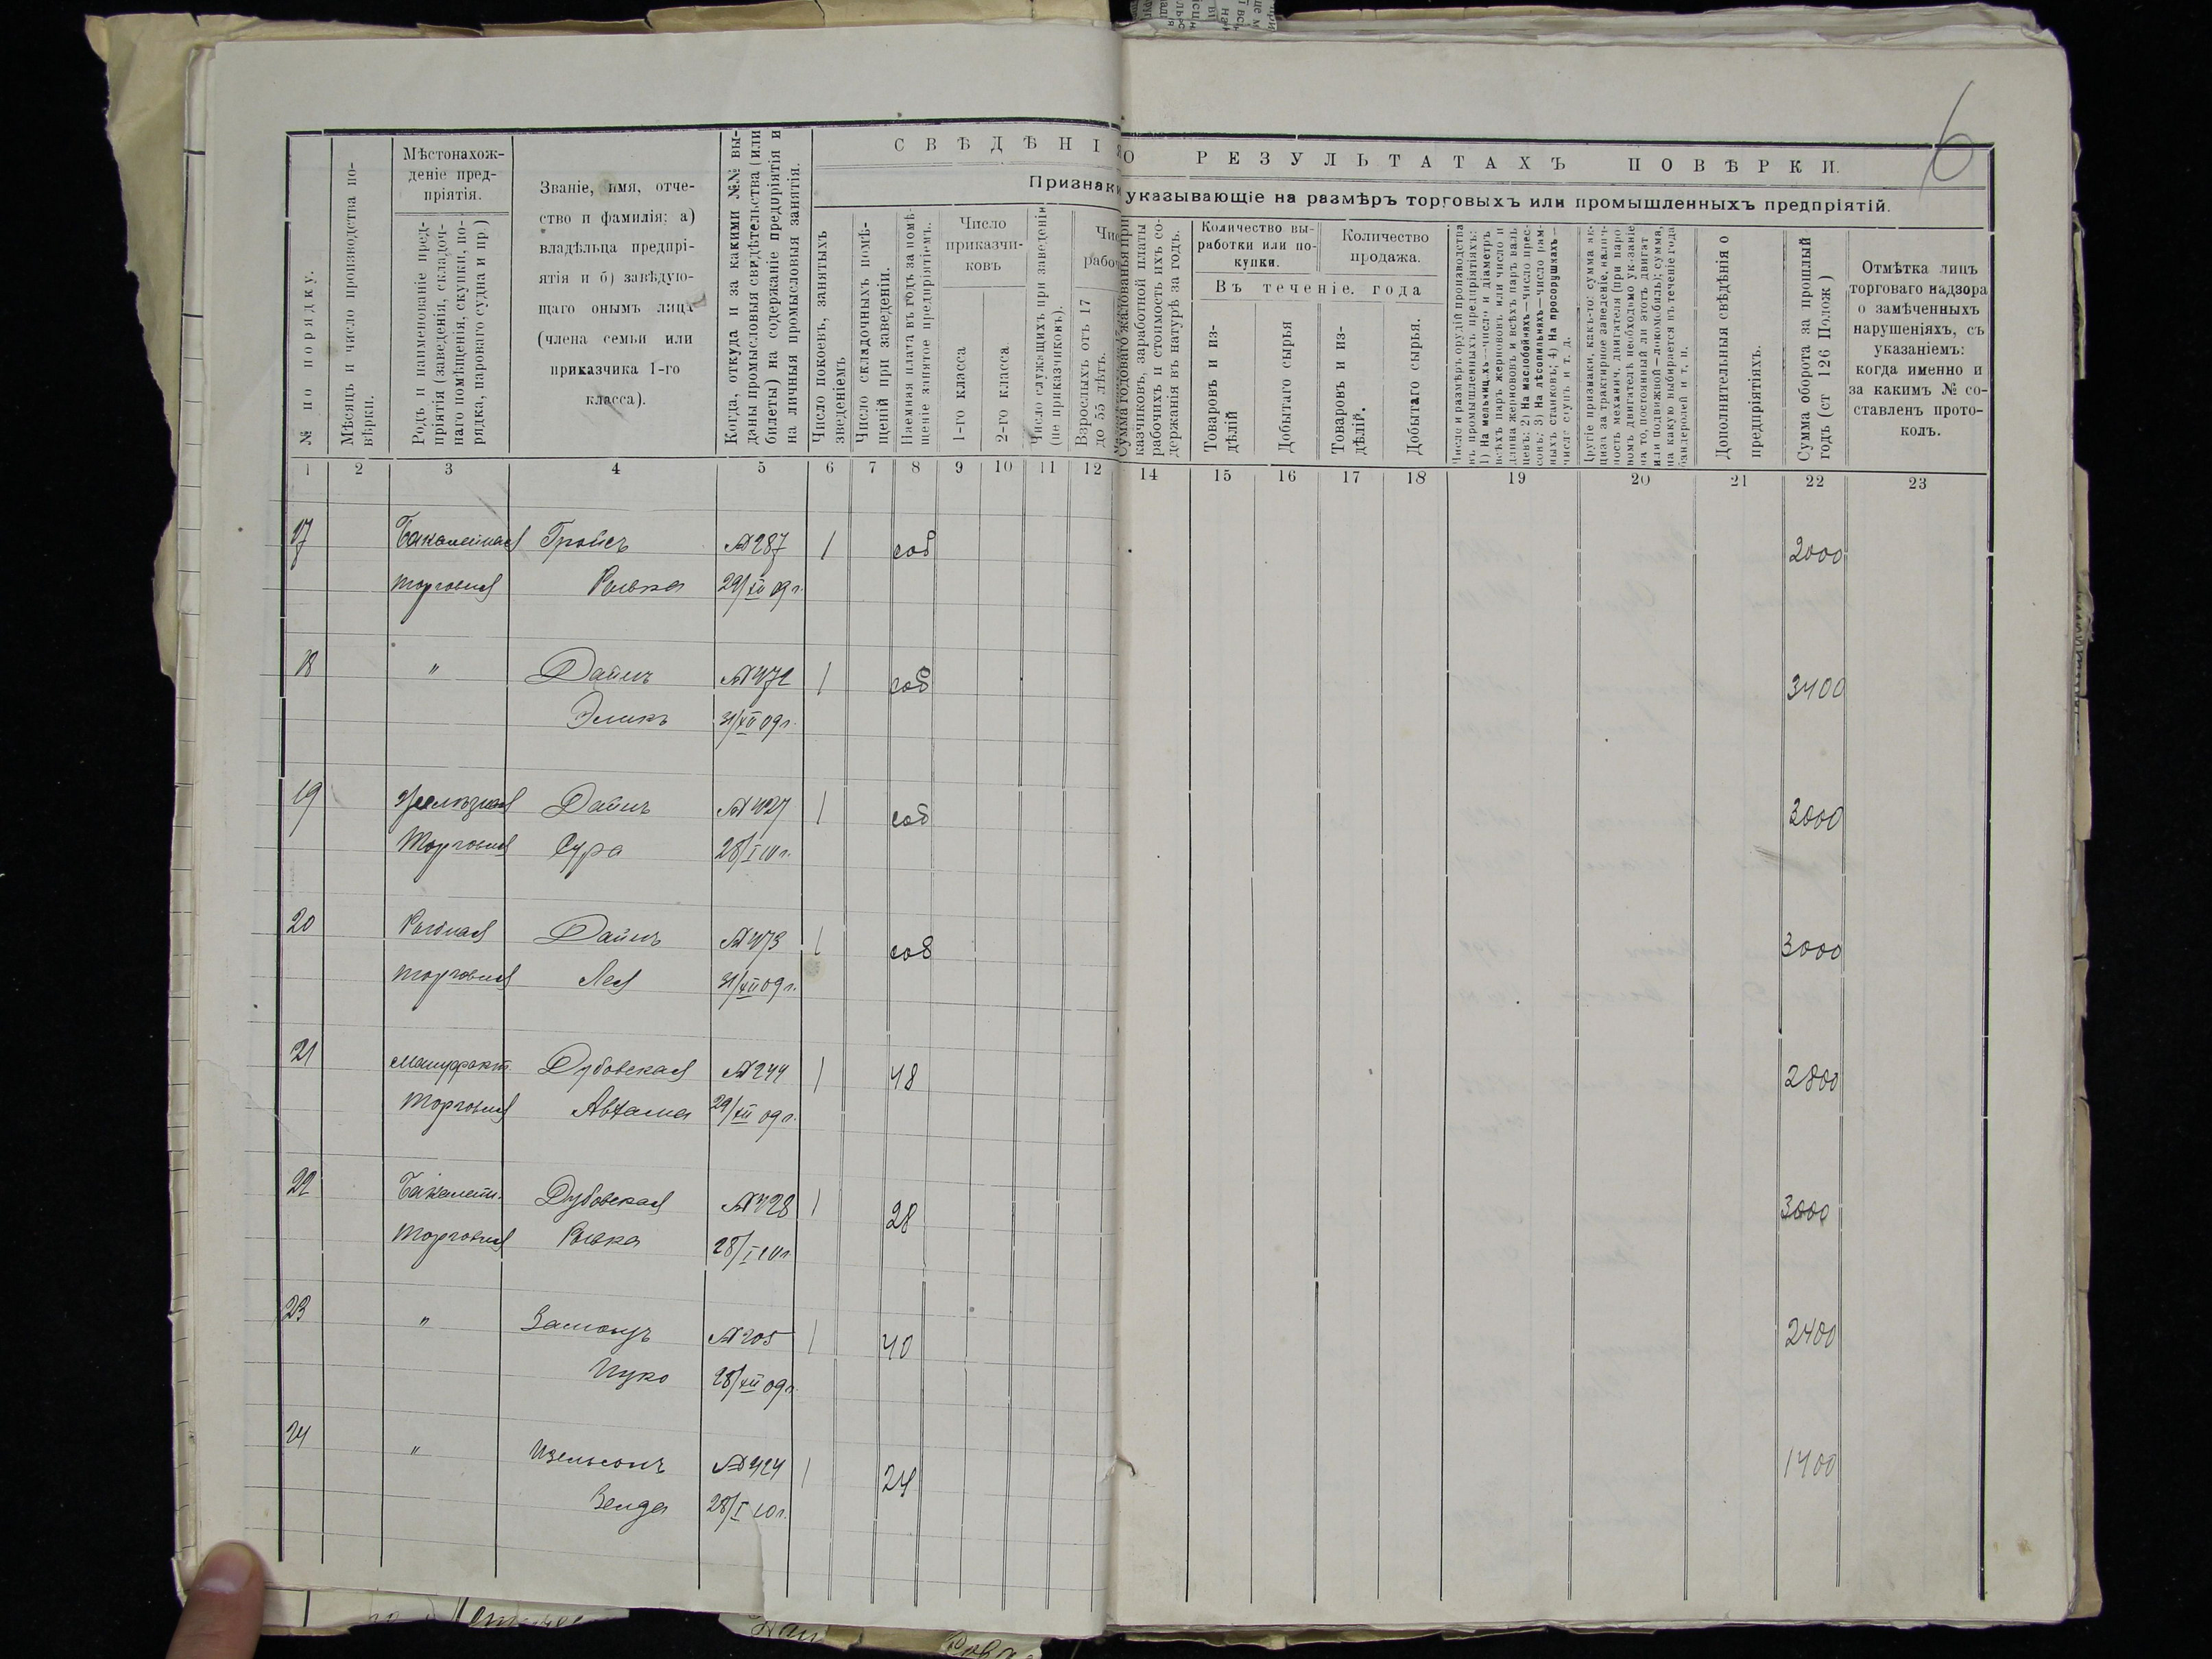 6
СВѢДѢНІЯ О РЕЗУЛЬТАТАХЪ ПОВѢРКИ.
Признаки указывающіе на размѣръ торговыхъ или промышленныхъ предпріятій.
№ по порядку.
Мѣсяцъ и число производства по-
вѣрки.
Мѣстонахож-
деніе пред-
пріятія.
Родъ и наименованіе пред-
пріятія (заведенія, складоч-
наго помѣщенія, скупки, по-
рядка, парового судна и пр.)
Званіе, имя, отче-
ство и фамилія: а)
владѣльца предпрі-
ятія и б) завѣдую-
щаго онымъ лица
(члена семьи или
приказчика 1-го
класса).
Когда, откуда и за какими №№ вы-
даны промысловыя свидѣтельства (или
билеты) на содержаніе предпріятія и
на личныя промысловыя занятія.
Число покоевъ, занятыхъ
зведеніемъ
Число складочныхъ помѣ-
щеній при заведеніи.
Наемная плата въ годъ за помѣ-
щеніе занятое предпріятіемъ.
Число
приказчи-
ковъ
1-го класса
2-го класса.
Число служащихъ при заведеніи
(не приказчиковъ).
Чис
рабоч
Взрослыхъ отъ 17
до 55 лѣтъ.
Сумма годоваго жалованья при
казчиковъ, заработной платы
рабочихъ и стоимость ихъ со-
держанія въ натурѣ за годъ.
Количество вы-
работки или по-
купки.
Количество
продажа.
Въ теченіе. года
Товаровъ и из-
дѣлій
Добытаго сырья
Товаровъ и из-
дѣлій.
Добытаго сырья.
Число и размѣръ орудій производства
въ промышленныхъ предпріятіяхъ:
1) На мельницахъ—число и діаметръ
всѣхъ паръ жернововъ или число и
длина жернововъ и всѣхъ паръ валь
цевъ; 2) На маслобойняхъ—число прес-
совъ; 3) На лѣсопильняхъ—число рам-
ныхъ станковъ; 4) На просорушкахъ—
число ступъ и т. д.
Другіе признаки, какъ-то: сумма ак-
циза за трактирное заведеніе, налич-
ность механич. двигателя (при паро
вомъ двигателѣ необходимо указаніе
на то, постоянный ли этотъ двигат
или подвижной—локомобиль); сумма,
на какую выбирается въ теченіе года
бандеролей и т. п.
Дополнительныя свѣдѣнія о
предпріятіяхъ.
Сумма оборота за прошлый
годъ (ст 126 Полож)
Отмѣтка лицъ
торговаго надзора
о замѣченныхъ
нарушеніяхъ, съ
указаніемъ:
когда именно и
за какимъ № со-
ставленъ прото-
колъ.
1 2 3 4 5 6 7 8 9 10 11 12 14 15 16 17 18 19 20 21 22 23
17 Бакалейная Гройсъ № 287 1 соб 2000
торговля Ривка 29/XII 09 г.
18 " Дайнъ № 472 1 соб 3400
Эликъ 31/XII 09 г.
19 Желѣзная Дайнъ № 427 1 соб 3000
Торговля Сура 28/I 10 г.
20 Рыбная Дайнъ № 473 1 соб 3000
торговля Лея 31/XII 09 г.
21 Мануфакт. Дубовская № 244 1 48 2800
Торговля 29/XII 09 г.
22 Бакалейн. Дубовская № 428 1 28 3000
Торговля Ривка 28/I 10 г.
23 " № 205 1 40 2400
Ицко 28/XII 09 г.
24 " Изельсонъ № 424 1 24 1400
Зелда 28/I 10 г.